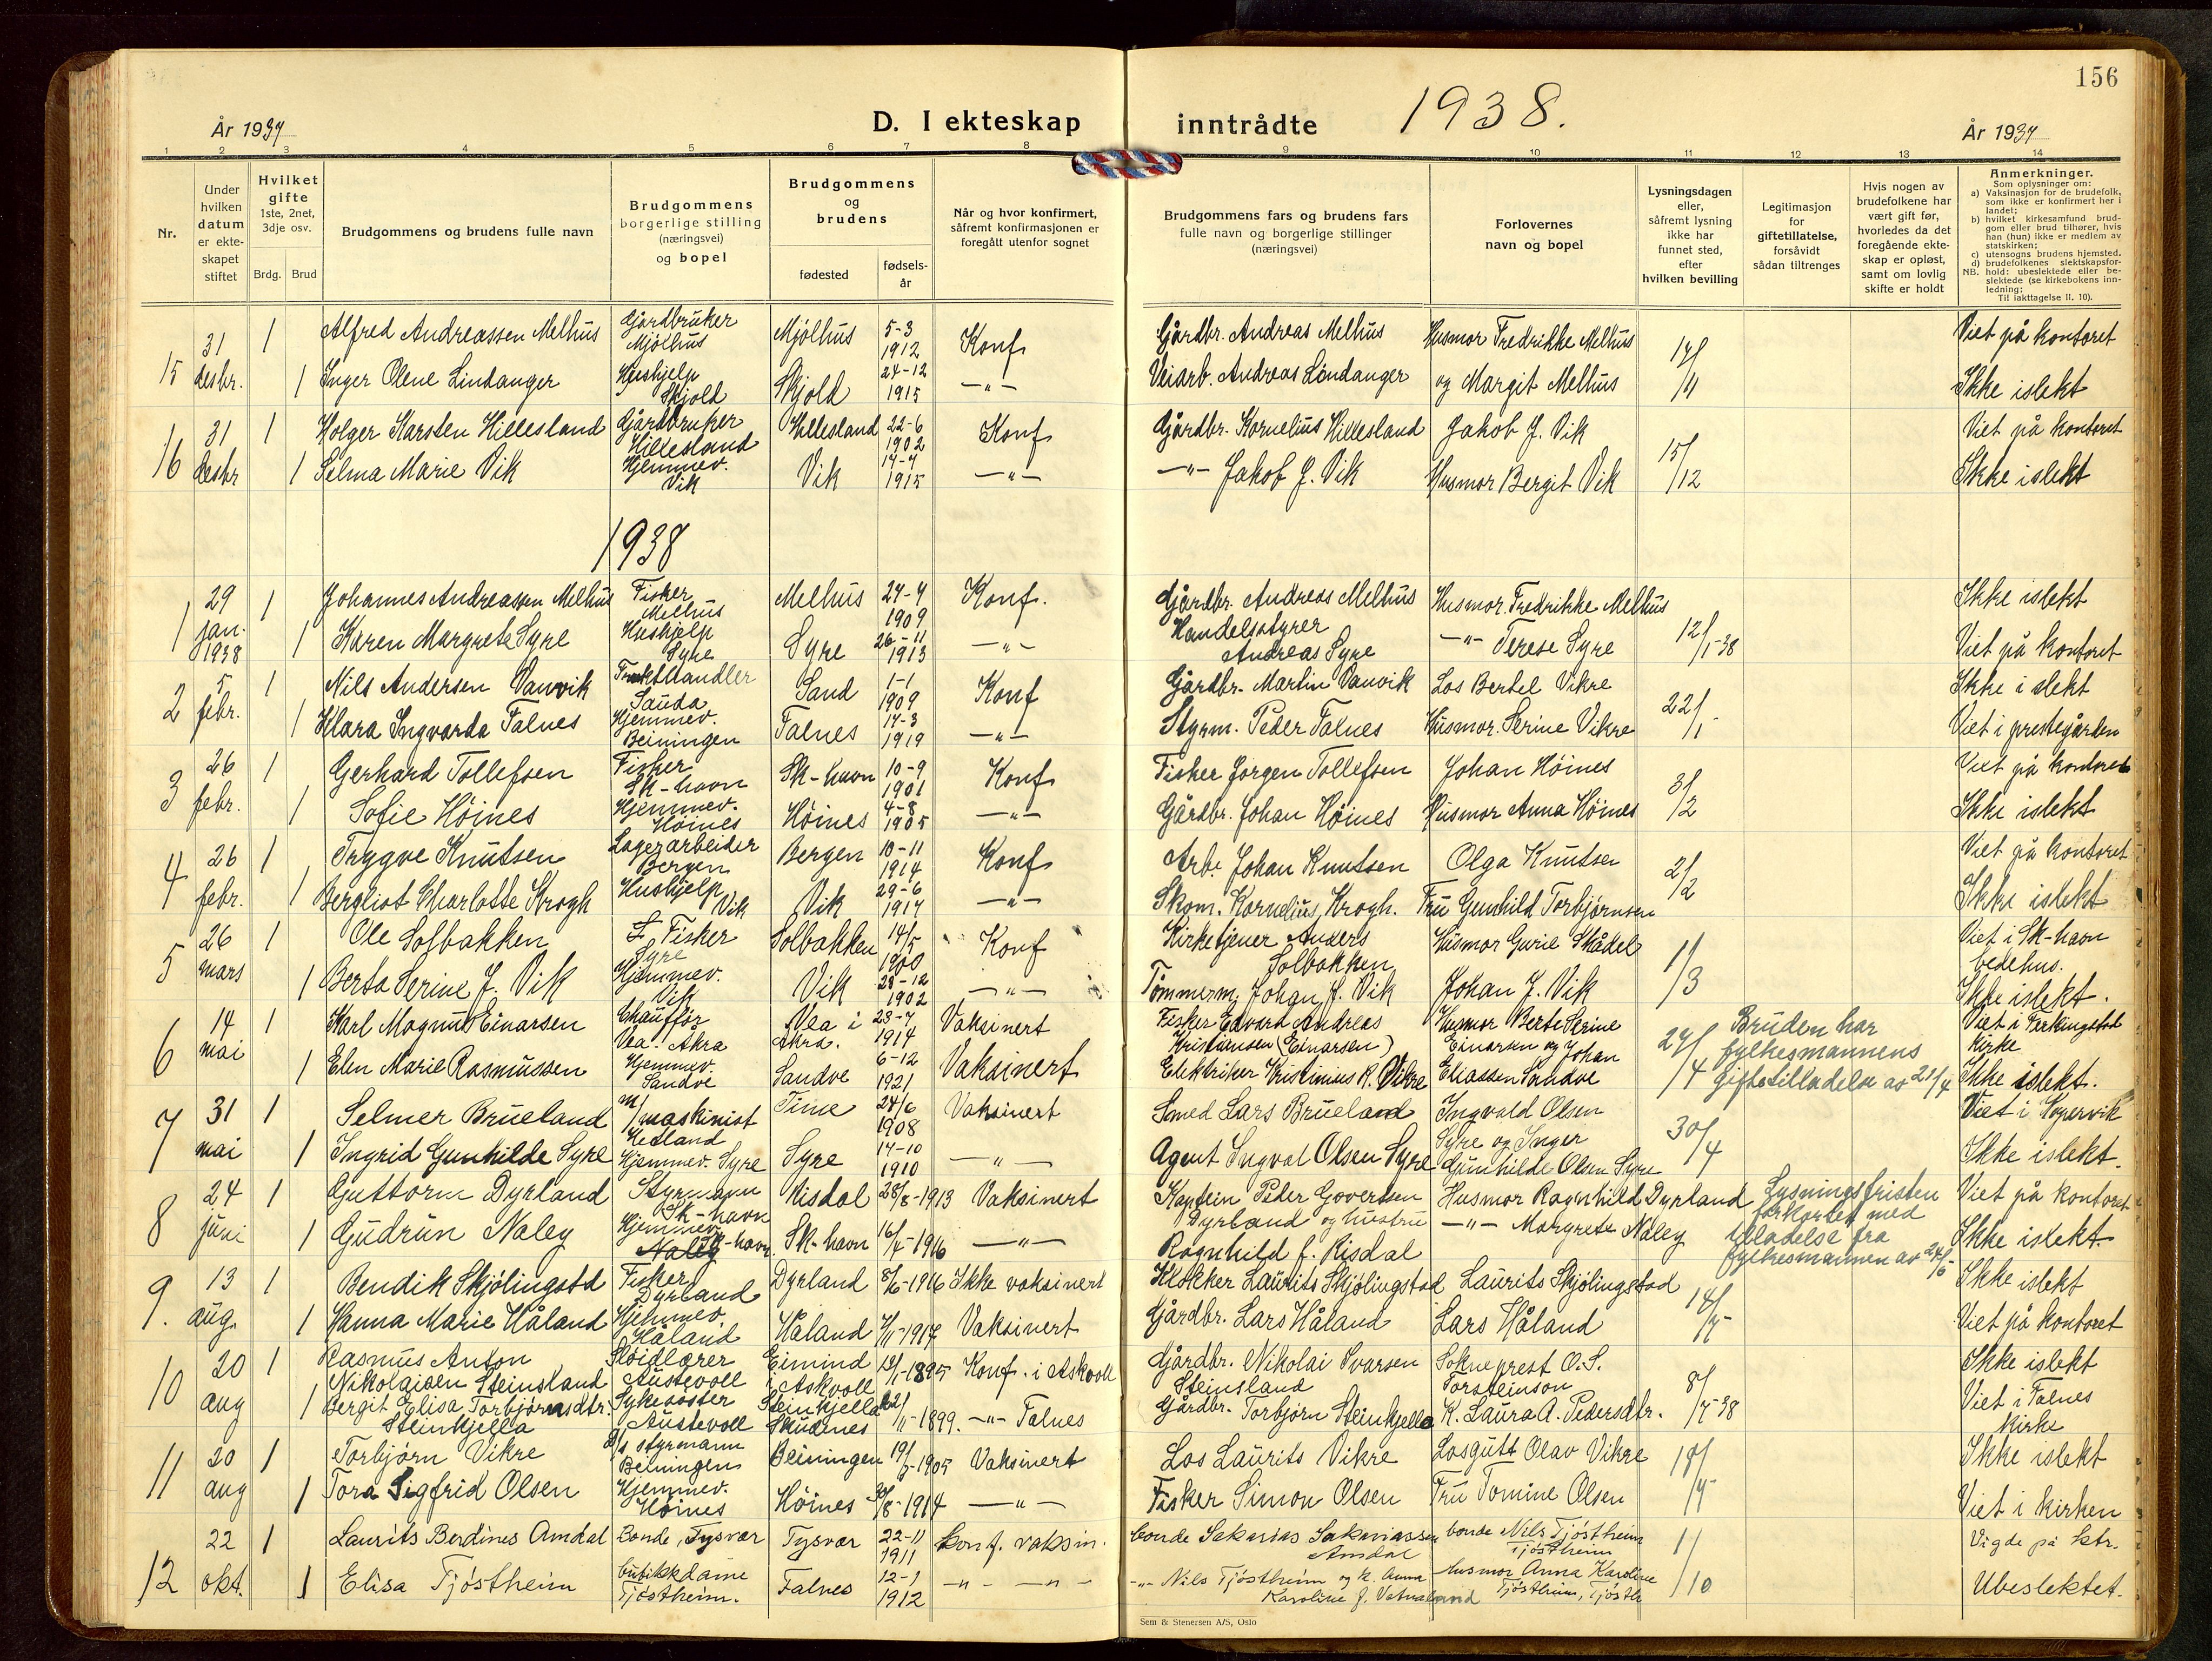 156
År 1937
D. I ekteskap inntrådte 1938.
År 1937
1 2 3 4 5 6 7 8 9 10 11 12 13 14
Nr.
Under hvilken datum er ekteskapet stiftet
Hvilket gifte 1ste, 2net, 3dje osv.
Brdg. Brud
Brudgommens og brudens fulle navn
Brudgommens borgerlige stilling (næringsvei) og bopel
Brudgommens og brudens
fødested
fødsels-år
Når og hvor konfirmert, såfremt konfirmasjonen er foregått utenfor sognet
Brudgommens fars og brudens fars fulle navn og borgerlige stillinger (næringsvei)
Forlovernes navn og bopel
Lysningsdagen eller, såfremt lysning ikke har funnet sted, efter hvilken bevilling
Legitimasjon for giftetillatelse, forsåvidt sådan tiltrenges
Hvis nogen av brudefolkene har vært gift før, hvorledes da det foregående ekteskap er opløst, samt om lovlig skifte er holdt
Anmerkninger.
Som oplysninger om:
a) Vaksinasjon for de brudefolk, som ikke er konfirmert her i landet;
b) hvilket kirkesamfund brudgom eller brud tilhører, hvis han (hun) ikke er medlem av statskirken;
c) utensogns brudens hjemsted.
d) brudefolkenes slektskapsforhold: ubeslektede eller beslektede (se kirkebokens innledning;
NB.
Til iakttagelse II. 10).
15 31 desbr. 1 Alfred Andreassen Melhus Gårdbruker Mjølhus Mjølhus 5-3 1912 Konf Gårdbr. Andreas Melhus Husmor Fredrikke Melhus Viet på kontoret
1 Inger Olene Lindanger Hushjelp Skjold Skjold 24-12 1915 -"- Veiarb. Andreas Lindanger og Margit Melhus Ikke i slekt
16 31 desbr 1 Holger Karsten Hillesland Gårdbruker Hillesland Hillesland 22-6 1902 Konf Gårdbr. Kornelius Hillesland Jakob J. Vik 15/12 Viet på kontoret
1 Selma Marie Vik Hjemmev. Vik Vik 1915 -"- -"- Jakob J. Vik Husmor Bergit Vik Ikke i slekt
1938
1 29 jan. 1938 1 Johannes Andreassen Melhus Fisker Melhus Melhus 1909 Konf. Gårdbr. Andreas Melhus Husmor Fredrikke Melhus 12/1-38 Ikke i slekt
1 Karen Margrete Syre Hushjelp Syre Syre 26-11 1913 -"- Handelsstyrer Andreas Syre -"- Terese Syre Viet på kontoret
2 5 febr. 1 Nils Andersen Vanvik Frukthandler Sauda Sand 1-1 1909 Konf Gårdbr. Martin Vanvik Los Bertel Vikre 22/1 Ikke i slekt
1 Klara Ingvarda Falnes Hjemmev. Beiningen Falnes 1919 -"- Styrm. Peder Falnes Husmor Serine Vikre Viet i prestegården
3 26 febr. 1 Gerhard Tollefsen Fisker Sk-havn Sk-havn 10-9 1901 Konf Fisker Jørgen Tollefsen Johan Høines 3/2 Viet på kontoret
1 Sofie Høines Hjemmev. Høines Høines 4-8 1905 -"- Gårdbr. Johan Høines Husmor Anna Høines Ikke i slekt
4 26 febr. 1 Trygve Knutsen Lagerarbeider Bergen Bergen 10-11 1914 Konf Arb. Johan Knutsen Olga Knutsen 2/2 Viet på kontoret
1 Bergliot Charlotte Krogh Hushjelp Vik Vik 29-6 1917 -"- Skom. Kornelius Krogh. Fru Gunhild Torbjørnsen Ikke i slekt
5 26 mars 1 Ole Solbakken Fisker Syre Solbakken 14/5 1900 Konf Kirketjener Anders Solbakken Husmor Gurie Skådel 1/3 Viet i Sk-havn bedehus.
1 Berta Serine J. Vik Hjemmev. Vik Vik 28-12 1902 -"- Tømmerm. Johan J. Vik Johan J. Vik Ikke i slekt.
6 14 mai 1 Karl Magnus Einarsen Chauffør Vea. Åkra Vea i Åkra. 1914 Vaksinert Fisker Edvard Andreas Kristiansen (Einarsen) Husmor Berte Serine Einarsen og Johan Eliassen Sandve Bruden har fylkesmannens giftetilladelse av 21/4 Viet i Ferkingstad Kirke
1 Elen Marie Rasmussen Hjemmev. Sandve Sandve 6-12 1921 Vaksinert Elektriker Kristinius R. Vikre Ikke i slekt.
7 31 mai 1 Selmer Brueland m/maskinist Hetland Time 24/6 1908 Vaksinert Smed Lars Brueland Ingvald Olsen Syre og Inger Gunhilde Olsen Syre 30/4 Viet i Kopervik
1 Ingrid Gunhilde Syre Hjemmev. Syre Syre 1910 -"- Agent Ingval Olsen Syre Ikke i slekt.
8 24 juni 1 Guttorm Dyrland Styrmann Sk-havn Risdal 28/8-1913 Vaksinert Kaptein Peder Govertsen Dyrland og hustru Ragnhild f. Risdal Husmor Ragnhild Dyrland Lysningsfristen forkortet med tilladelse fra fylkesmannen av Viet på kontoret
1 Gudrun Naley Hjemmev. Sk-havn. Sk-havn 16/4-1916 -"- -"- Margrete Naley Ikke i slekt.
9. 13 aug. 1 Bendik Skjølingstad Fisker Dyrland Dyrland 8/6-1916 Ikke vaksinert Klokker Laurits Skjølingstad Laurits Skjølingstad 14/7 Ikke i slekt
1 Hanna Marie Håland Hjemmev. Håland Håland 1917 Vaksinert Gårdbr. Lars Håland Lars Håland Viet på kontoret
10 20 aug 1 Rasmus Anton Nikolaisen Steinsland Sløidlærer Austevoll Eimind i Askvoll 1895 Konf. i Askvoll Gårdbr. Nikolai Ivarsen Steinsland Sokneprest O.S. Torsteinson 8/7-38 Ikke i slekt
1 Bergit Elisa Torbjørnsdtr. Steinkjella Sykesøster Austevoll Steinkjella Skudenes 1899. -"- Falnes Gårdbr. Torbjørn Steinkjella K. Laura A. Pedersdtr. Viet i Falnes Kirke
11 20 aug 1 Torbjørn Vikre styrmann Beiningen Beiningen 1905 Vaksinert Los Laurits Vikre Losgutt Olav Vikre 18/7 Ikke i slekt
1 Tora Sigfrid Olsen Hjemmev. Høines Høines 30/8-1914 -"- Fisker Simon Olsen Fru Tomine Olsen Viet i kirken
12 22 okt. 1 Laurits Berdines Amdal Bonde, Tysvær Tysvær 22-11 1911 konf. vaksin. bonde Sakarias Sakariassen Amdal bonde Nils Tjøstheim Tjøstheim 1/10 Vigde på ktr.
1 Elisa Tjøstheim butikkdame Tjøstheim. Falnes 12-1 1912 -"- -"- -"- Nils Tjøstheim og k. Anna Karoline f. Vatnaland husmor Anna Karoline Tjøstheim, Tjøsth Ubeslektet.
Sem & Stenersen A/S, Oslo